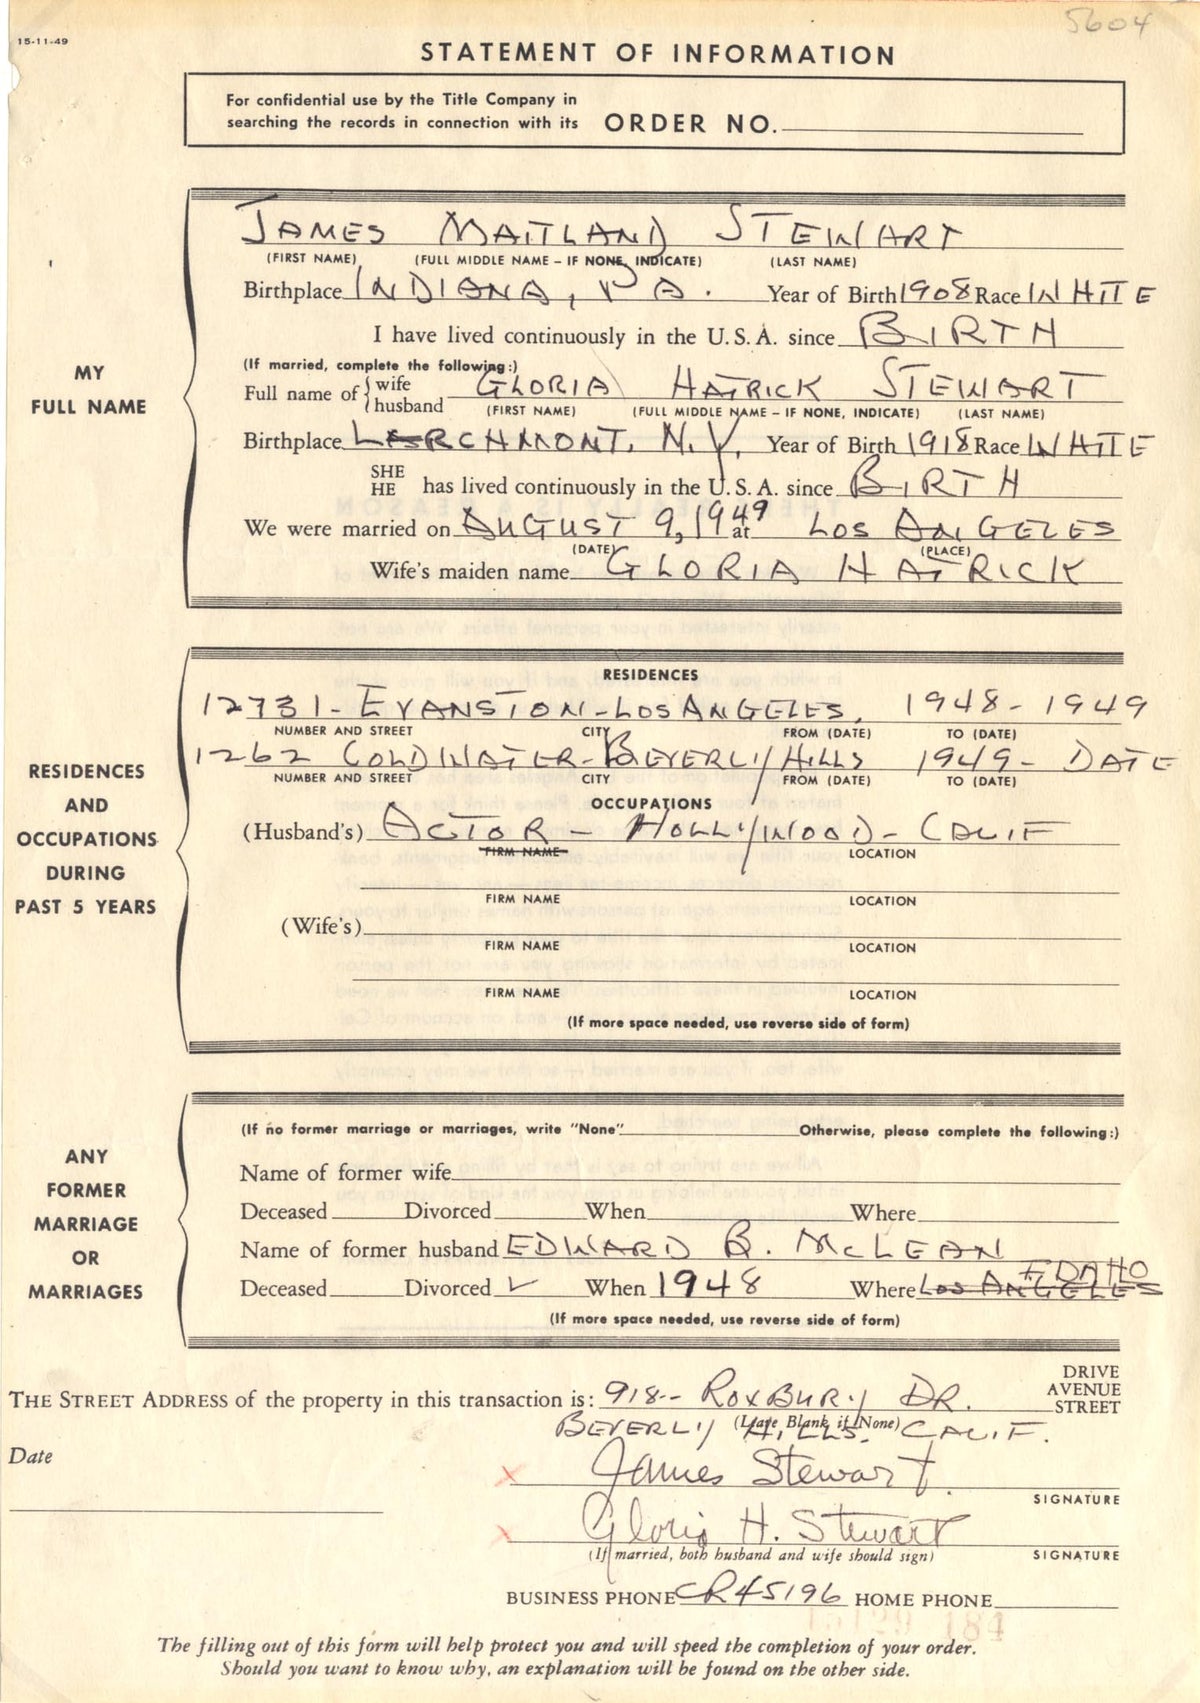 5604
15-11-49
STATEMENT OF INFORMATION
For confidential use by the Title Company in
searching the records in connection with its ORDER NO.
JAMES MAITLAND STEWART
(FIRST NAME) (FULL MIDDLE NAME – IF NONE, INDICATE) (LAST NAME)
Birthplace INDIANA, PA. Year of Birth 1908 Race WHITE
I have lived continuously in the U.S.A. since BIRTH
MY
FULL NAME
(If married, complete the following:)
Full name of { wife husband GLORIA HATRICK STEWART
(FIRST NAME) (FULL MIDDLE NAME – IF NONE, INDICATE) (LAST NAME)
Birthplace LARCHMONT, N.Y. Year of Birth 1918 Race WHITE
SHE
HE has lived continuously in the U.S.A. since BIRTH
We were married on AUGUST 9, 1949 at LOS ANGELES
(DATE) (PLACE)
Wife's maiden name GLORIA HATRICK
RESIDENCES
AND
OCCUPATIONS
DURING
PAST 5 YEARS
RESIDENCES
12731 - EVANSTON - LOS ANGELES, 1948 - 1949
NUMBER AND STREET CITY FROM (DATE) TO (DATE)
1262 COLDWATER - BEVERLY HILLS 1949 - DATE
NUMBER AND STREET CITY FROM (DATE) TO (DATE)
OCCUPATIONS
(Husband's) ACTOR - HOLLYWOOD - CALIF
FIRM NAME LOCATION
FIRM NAME LOCATION
(Wife's)
FIRM NAME LOCATION
FIRM NAME LOCATION
(If more space needed, use reverse side of form)
ANY
FORMER
MARRIAGE
OR
MARRIAGES
(If no former marriage or marriages, write "None" Otherwise, please complete the following:)
Name of former wife
Deceased Divorced When Where
Name of former husband EDWARD B. MCLEAN
IDAHO
Deceased Divorced ✓ When 1948 Where LOS ANGELES
(If more space needed, use reverse side of form)
DRIVE
AVENUE
STREET
THE STREET ADDRESS of the property in this transaction is: 918 -- ROXBURY DR.
(Leave Blank if None)
BEVERLY HILLS. CALIF.
Date
X James Stewart.
SIGNATURE
X Gloria H. Stewart
(If married, both husband and wife should sign) SIGNATURE
BUSINESS PHONE CR45196 HOME PHONE
The filling out of this form will help protect you and will speed the completion of your order.
Should you want to know why, an explanation will be found on the other side.